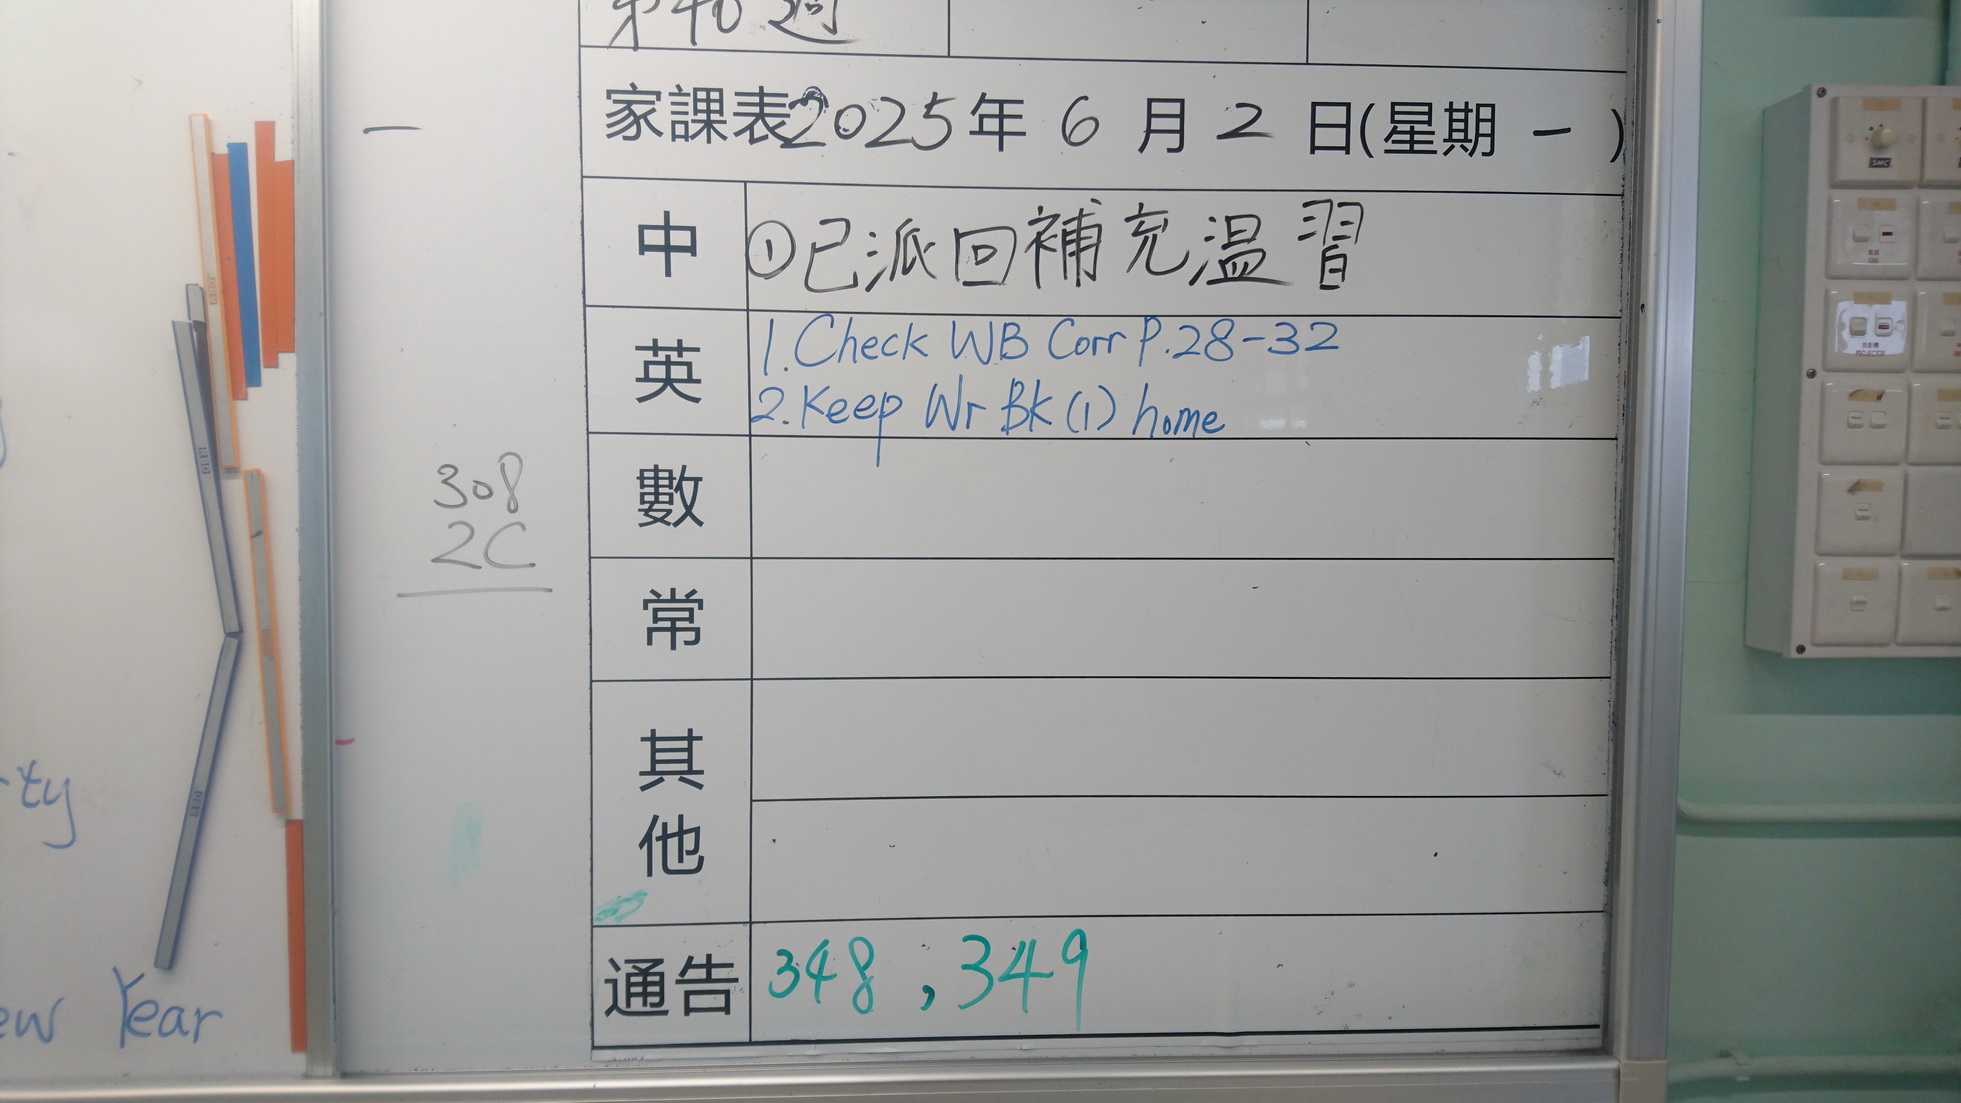 第40週
家課表2025年6月2日(星期一)
中
①已派回補充溫習
英
1.Check WB Corr P.28-32
2.Keep Wr Bk(1) home
數
308
2C
常
其他
通告
348,349
ty
ew Year
PROJECTOR